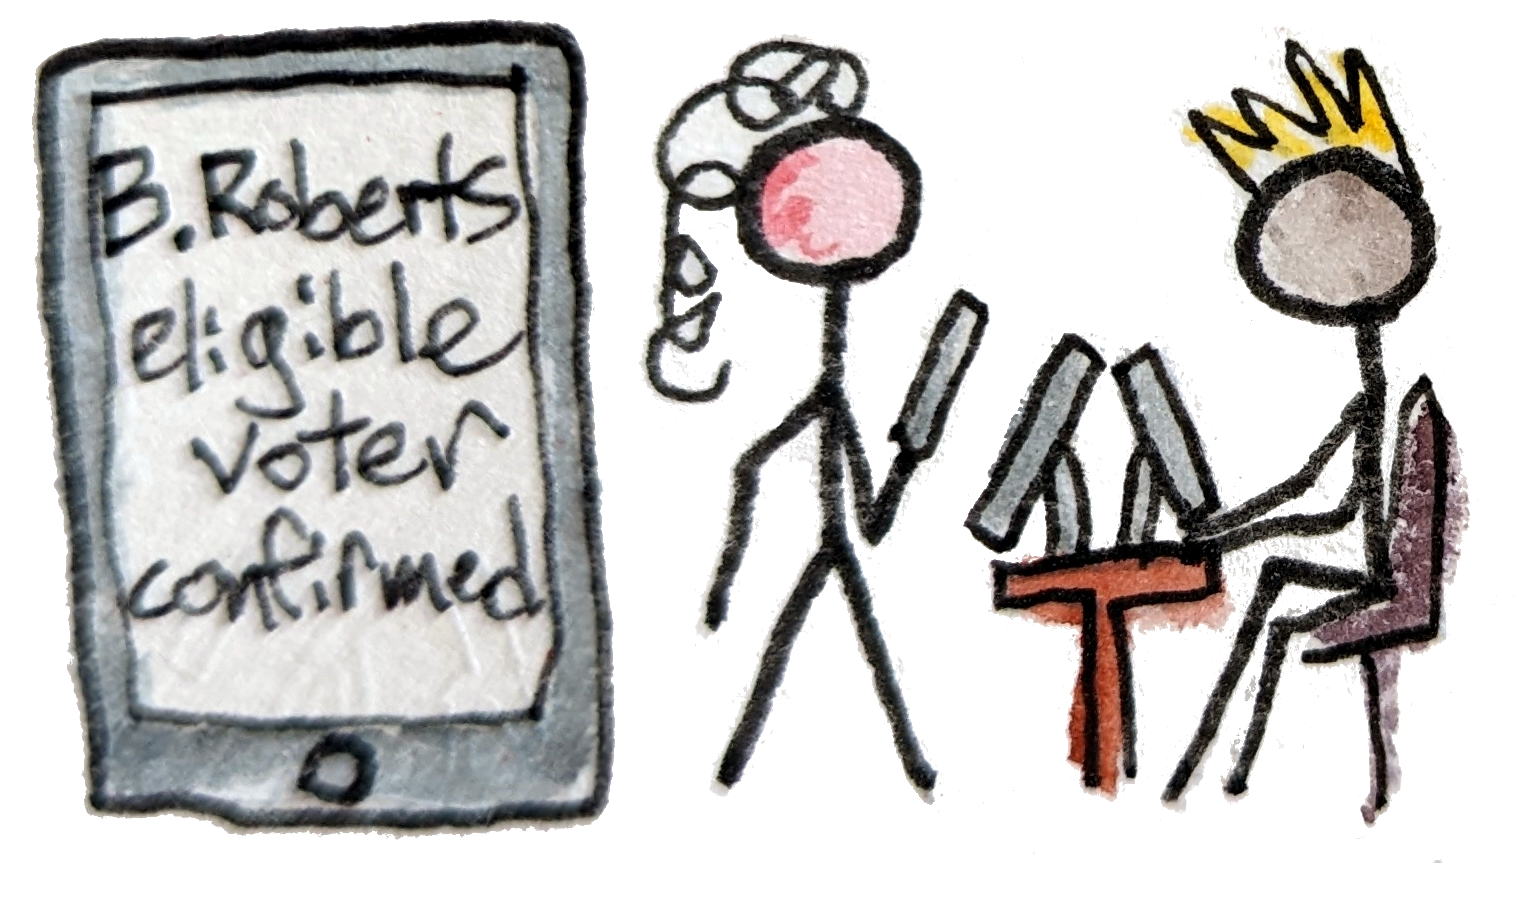 B. Roberts
eligible
voter
confirmed